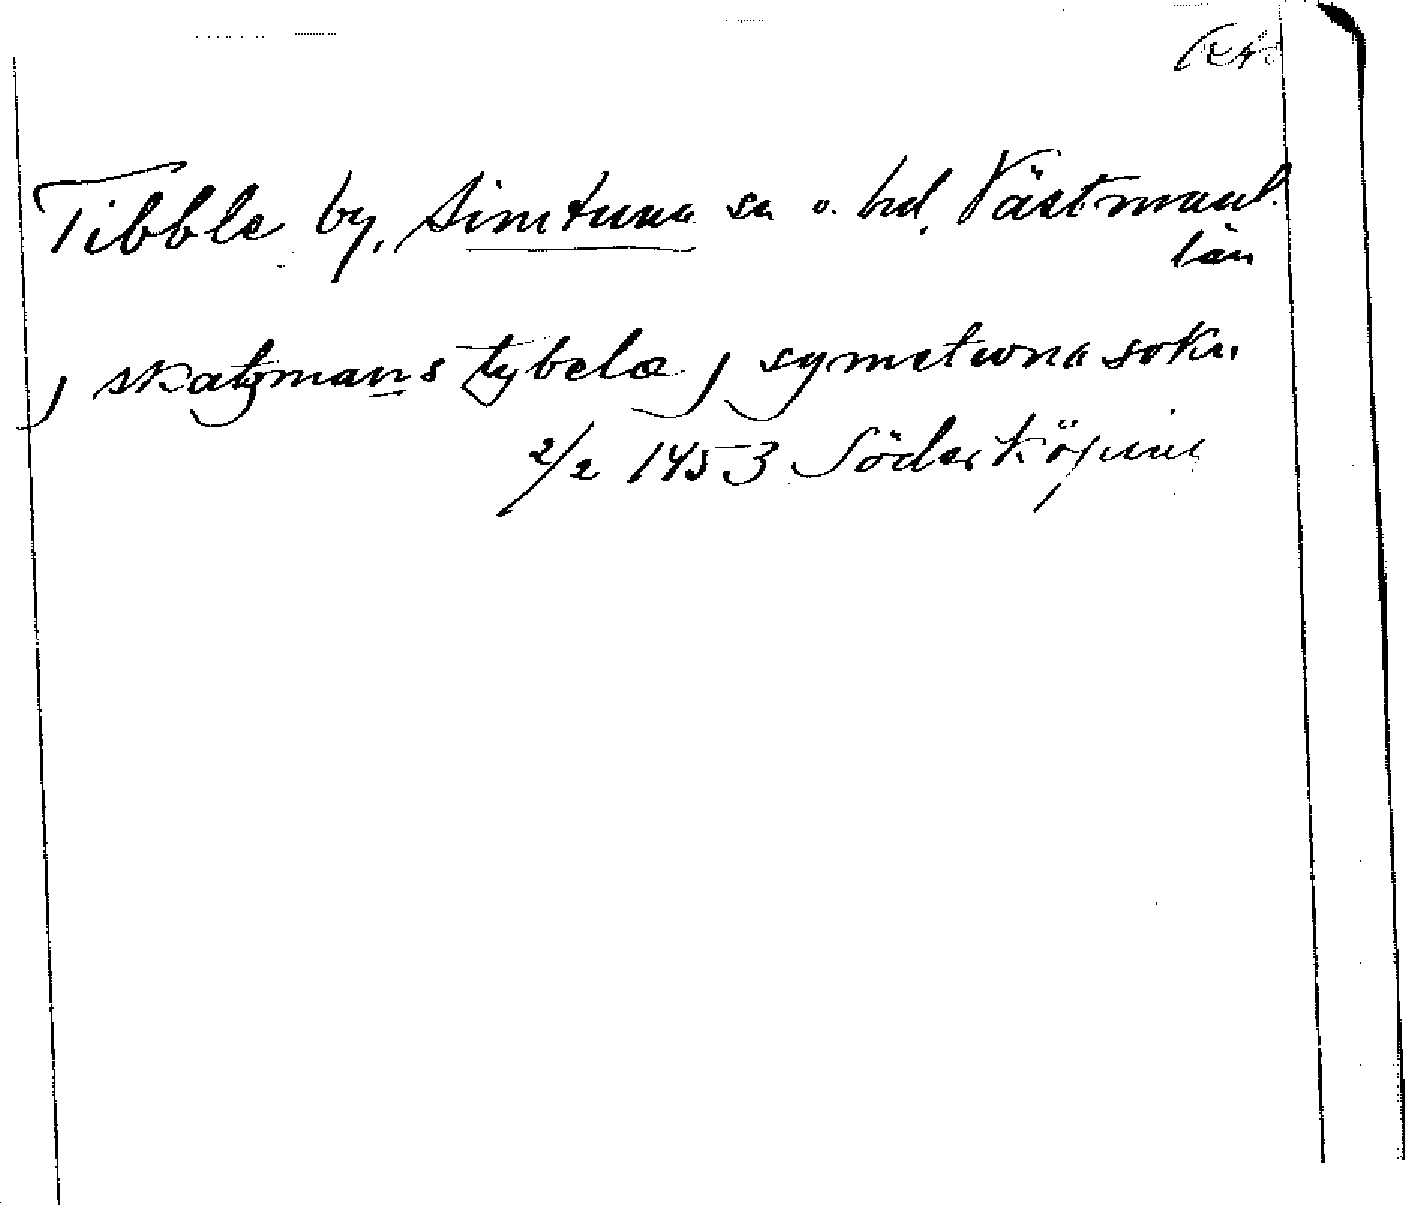 Tibble by, Simtuna sn o. hd, Västmanl.
län
j skatzmans tybelæ j symetwna sokn
2/2 1453 Söderköping